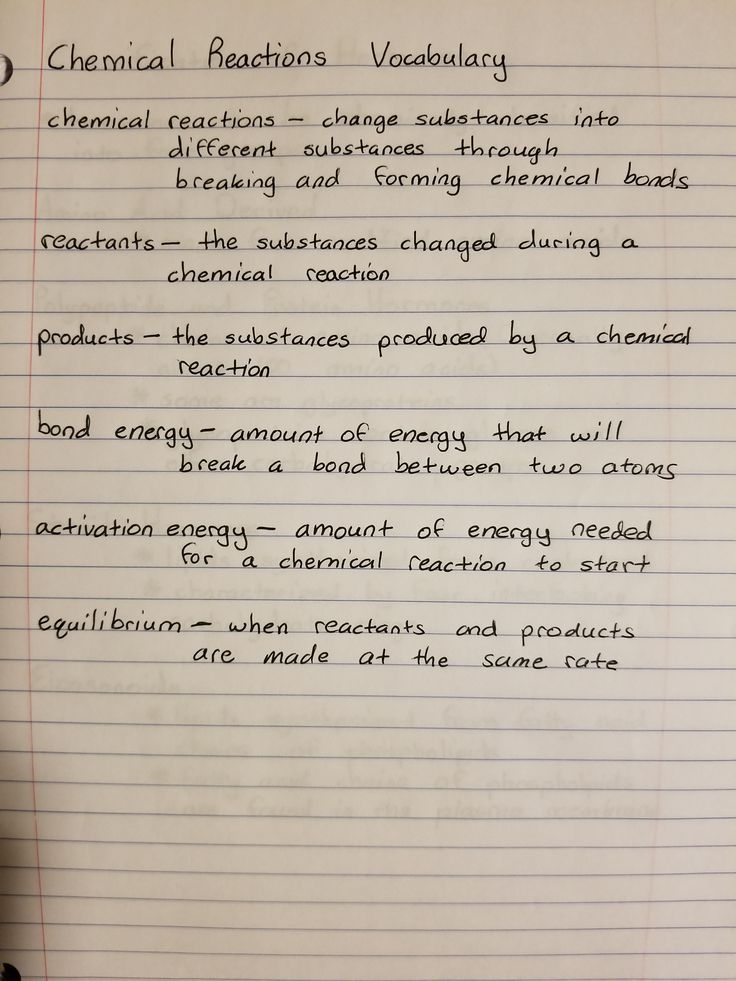 Chemical Reactions Vocabulary
chemical reactions – change substances into
different substances through
breaking and forming chemical bonds
reactants – the substances changed during a
chemical reaction
products – the substances produced by a chemical
reaction
bond energy – amount of energy that will
break a bond between two atoms
activation energy – amount of energy needed
for a chemical reaction to start
equilibrium – when reactants and products
are made at the same rate